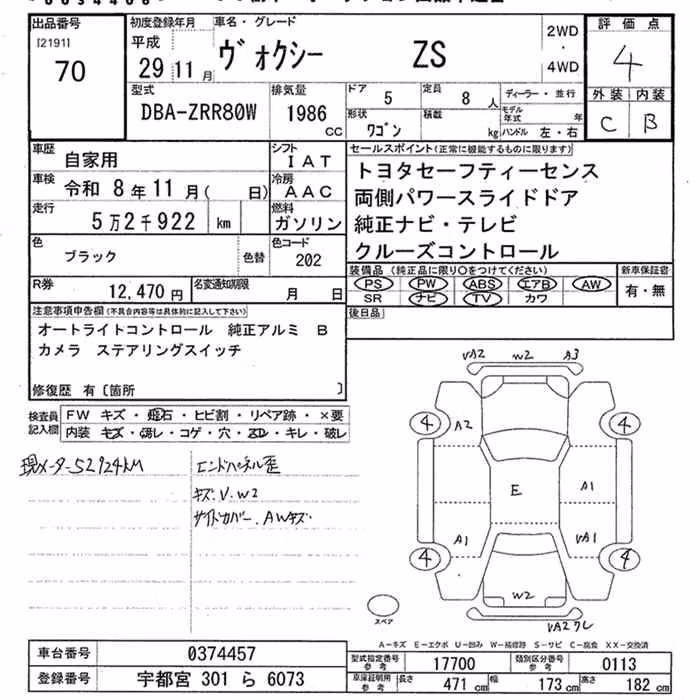 出品番号
[2191]
70
初度登録年月
平成
29年 11月
車名・グレード
ヴォクシー ZS
2WD
・
4WD
評価点
4
外装 内装
C B
型式
DBA-ZRR80W
排気量
1986
CC
ドア
5
定員
8 人
形状
ワゴン
積載
kg
ディーラー・並行
モデル年式 年
ハンドル 左・右
車歴 自家用
シフト IAT
車検 令和 8年 11月( 日)
冷房 AAC
走行 5万2千922 km
燃料 ガソリン
セールスポイント(正常に機能するものに限ります)
トヨタセーフティーセンス
両側パワースライドドア
純正ナビ・テレビ
クルーズコントロール
色 ブラック 色替
色コード 202
装備品(純正品に限り〇をつけてください)
PS PW ABS エアB AW
SR ナビ TV カワ
新車保証書
有・無
R券 12,470 円
名変通知期限 月 日
後日品
注意事項申告欄(不具合内容等は具体的に記入して下さい)
オートライトコントロール 純正アルミ B
カメラ ステアリングスイッチ
修復歴 有〔箇所 〕
検査員記入欄
FW キズ・飛石・ヒビ割・リペア跡・×要
内装 キズ・汚レ・コゲ・穴・スレ・キレ・破レ
現メーター52924KM
エンドパネル歪
キズ.V.W2
サイドカバー.AWキズ
VA2 W2 A3
4 A2 4
E A1
A1 VA1
4 4
W2
VA2ワレ
スペア
A-キズ E-エクボ U-凹み W-補修跡 S-サビ C-腐食 XX-交換済
車台番号 0374457
登録番号 宇都宮 301 ら 6073
型式指定番号 参考 17700
類別区分番号 参考 0113
車庫証明用 参考 長さ 471 cm 幅 173 cm 高さ 182 cm